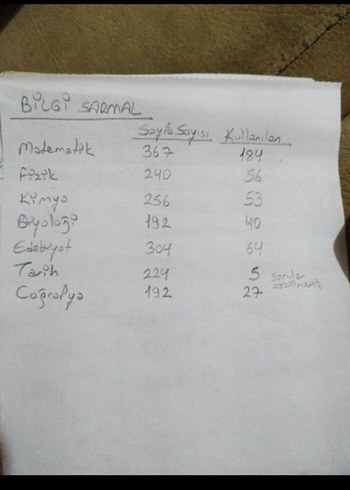 BİLGİ SARMAL
Sayfa Sayısı Kullanılan
Matematik 367 184
Fizik 240 56
Kimya 256 53
Biyoloji 192 40
Edebiyat 304 64
Tarih 224 5 sorular
Coğrafya 192 27